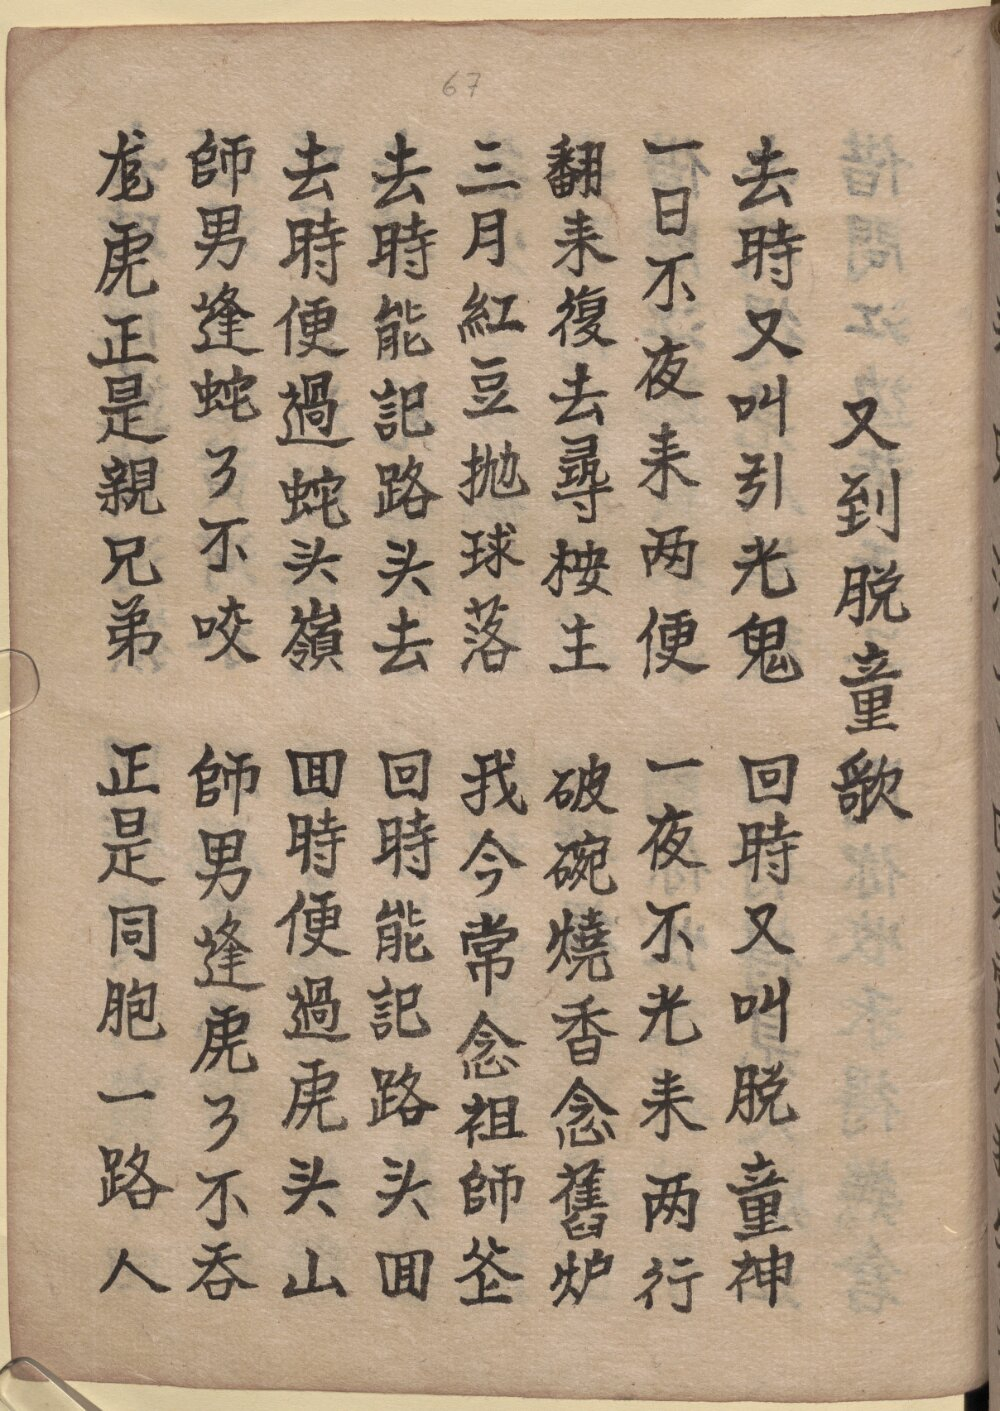 67
又到脱童歌
去時又叫引光鬼 回時又叫脱童神
一日不夜来两便 一夜不光来两行
翻来復去尋桉主 破碗燒香念舊炉
三月紅豆抛球落 我今常念祖師
去時能記路头去 回時能記路头囬
去時便過蛇头嶺 囬時便過虎头山
師男逢蛇了不咬 師男逢虎了不吞
虎正是親兄弟 正是同胞一路人